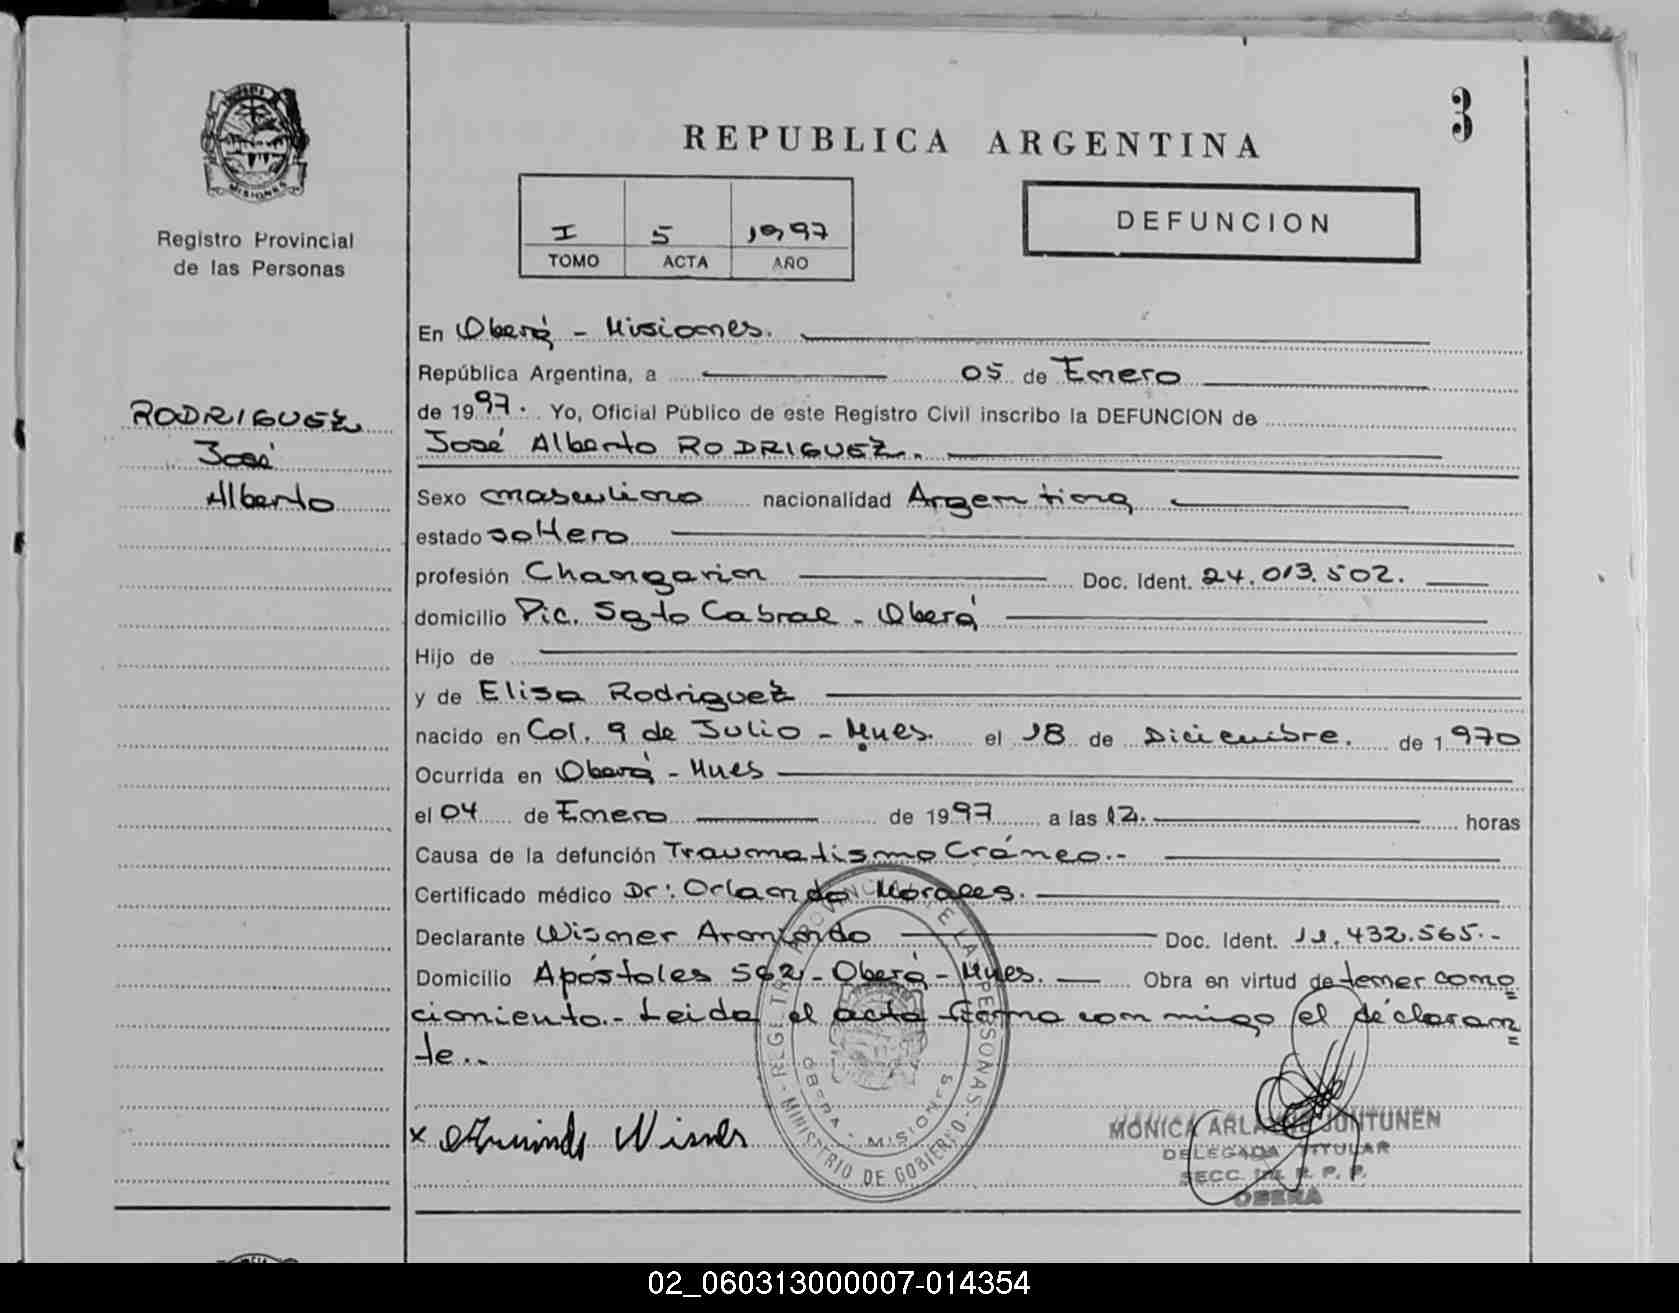 3
REPUBLICA ARGENTINA
MISIONES
I 5 1997
TOMO ACTA AÑO
DEFUNCION
Registro Provincial
de las Personas
RODRIGUEZ
José
Alberto
En Oberá - Misiones.
República Argentina, a 05 de Enero
de 1997. Yo, Oficial Público de este Registro Civil inscribo la DEFUNCION de
José Alberto RODRIGUEZ.
Sexo masculino nacionalidad Argentina
estado soltero
profesión Changarin Doc. Ident. 24.013.502.
domicilio Pic. Sgto Cabral - Oberá
Hijo de
y de Elisa Rodriguez
nacido en Col. 9 de Julio - Mnes. el 18 de Diciembre. de 1970
Ocurrida en Oberá - Mnes
el 04 de Enero de 1997 a las 12. horas
Causa de la defunción Traumatismo Cráneo.-
Certificado médico Dr: Orlando Morales.
Declarante Wismer Armando Doc. Ident. 11.432.565.-
Domicilio Apóstoles 562 - Oberá - Mnes. Obra en virtud de tener cono=
cimiento.- Leida el acta firma conmigo el declaran=
te..
x Armindo Wismer
REGISTRO PROVINCIAL DE LAS PERSONAS - MINISTERIO DE GOBIERNO
OBERA - MISIONES
MONICA JUNTUNEN
DELEGADA TITULAR
SECC. R. P. P.
OBERA
02_060313000007-014354